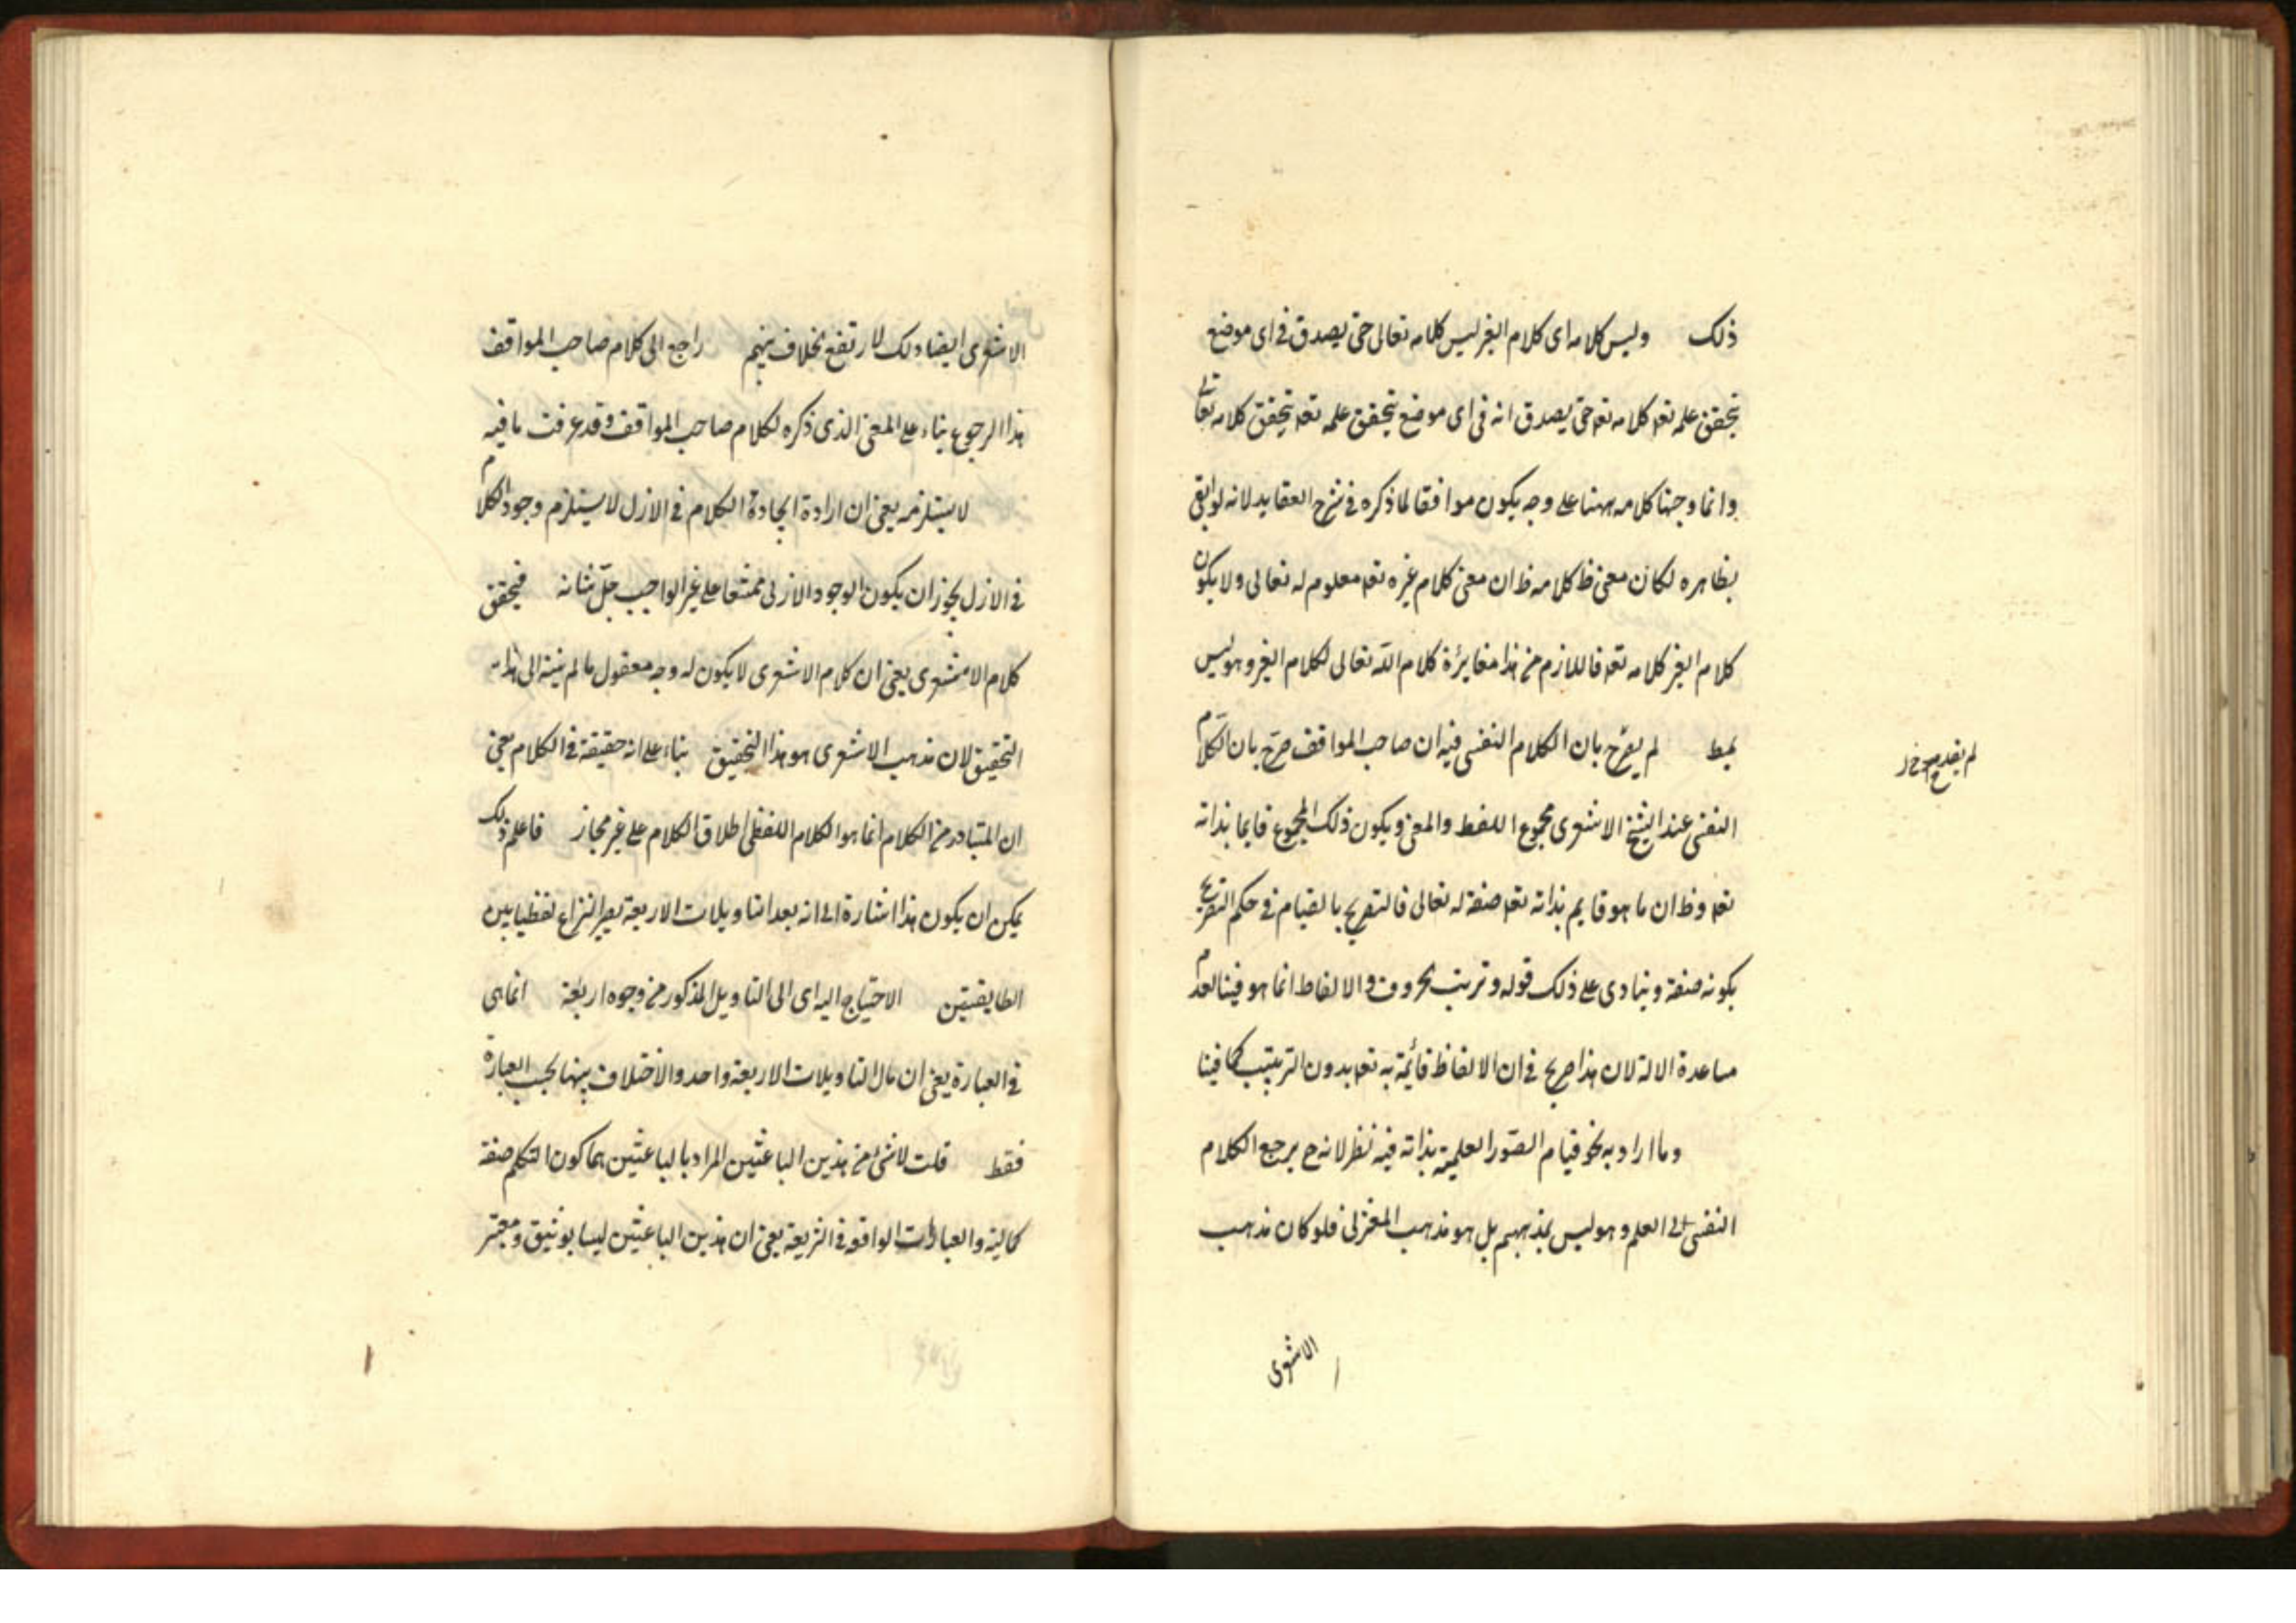 ذلك وليس كلامه اى كلام الغير ليس كلامه تعالى حتى يصدق فى اى موضع
يتحقق علمه تعه كلامه تعه حتى يصدق انه فى اى موضع يتحقق علمه تعه يتحقق كلامه تعالى
وانما وجهنا كلامه ههنا على وجه يكون موافقا لما ذكره فى شرح العقايد لانه لو ابقى
بظاهره لكان معنى ظ كلامه ظ ان معنى كلام غيره تعه معلوم له تعالى ولا يكون
كلام الغير كلامه تعه فاللازم من هذا مغايرة كلام الله تعالى لكلام الغير وهو ليس
لم يصرح بان الكلام النفسى فيه ان صاحب المواقف صرح بان الكلام
النفسى عند الشيخ الاشعرى مجموع اللفظ والمعنى ويكون ذلك المجموع قايما بذاته
تعه وظ ان ما هو قايم بذاته تعه صفة له تعالى فالتصريح بالقيام فى حكم التصريح
بكونه صفة وينادى على ذلك قوله وترتب الحروف والالفاظ انما هو فينا لعدم
مساعدة الالة لان هذا صريح فى ان الالفاظ قائمة به تعه بدون الترتيب كما فينا
وما اراد به نحو قيام الصور العلمية بذاته فيه نظر لانه ح يرجع الكلام
النفسى الى العلم وهو ليس بمذهبهم بل هو مذهب المعتزلى فلو كان مذهب
الاشعرى
الاشعرى ايضا ذلك لارتفع الخلاف بينهم راجع الى كلام صاحب المواقف
هذا الرجوع بناء على المعنى الذى ذكره لكلام صاحب المواقف وقد عرفت ما فيه
لا يستلزمه يعنى ان ارادة ايجادة الكلام فى الازل لا يستلزم وجود الكلام
فى الازل يجوز ان يكون الوجود الازلى ممتنعا على غير الواجب جل شانه فيحقق
كلام الاشعرى يعنى ان كلام الاشعرى لا يكون له وجه معقول ما لم ينته الى هذا
التحقيق لان مذهب الاشعرى هو هذا التحقيق بناء على انه حقيقة فى الكلام يعنى
ان المتبادر من الكلام انما هو الكلام اللفظى اطلاق الكلام على غير مجاز فاعلم ذلك
يمكن ان يكون هذا اشارة الى انه بعد التاويلات الاربعة يصير النزاع لفظيا بين
الطايفتين الاحتياج اليه اى الى التاويل المذكور من وجوه اربعة انما هى
فى العبارة يعنى ان مال التاويلات الاربعة واحد والاختلاف بينها بحسب العبارة
فقط قلت لا شئ من هذين الباعثين المراد بالباعثين هما كون التكلم صفة
كمالية والعبارات الواقعه فى الشريعة يعنى ان هذين الباعثين ليسا بوثيق ومعتبر